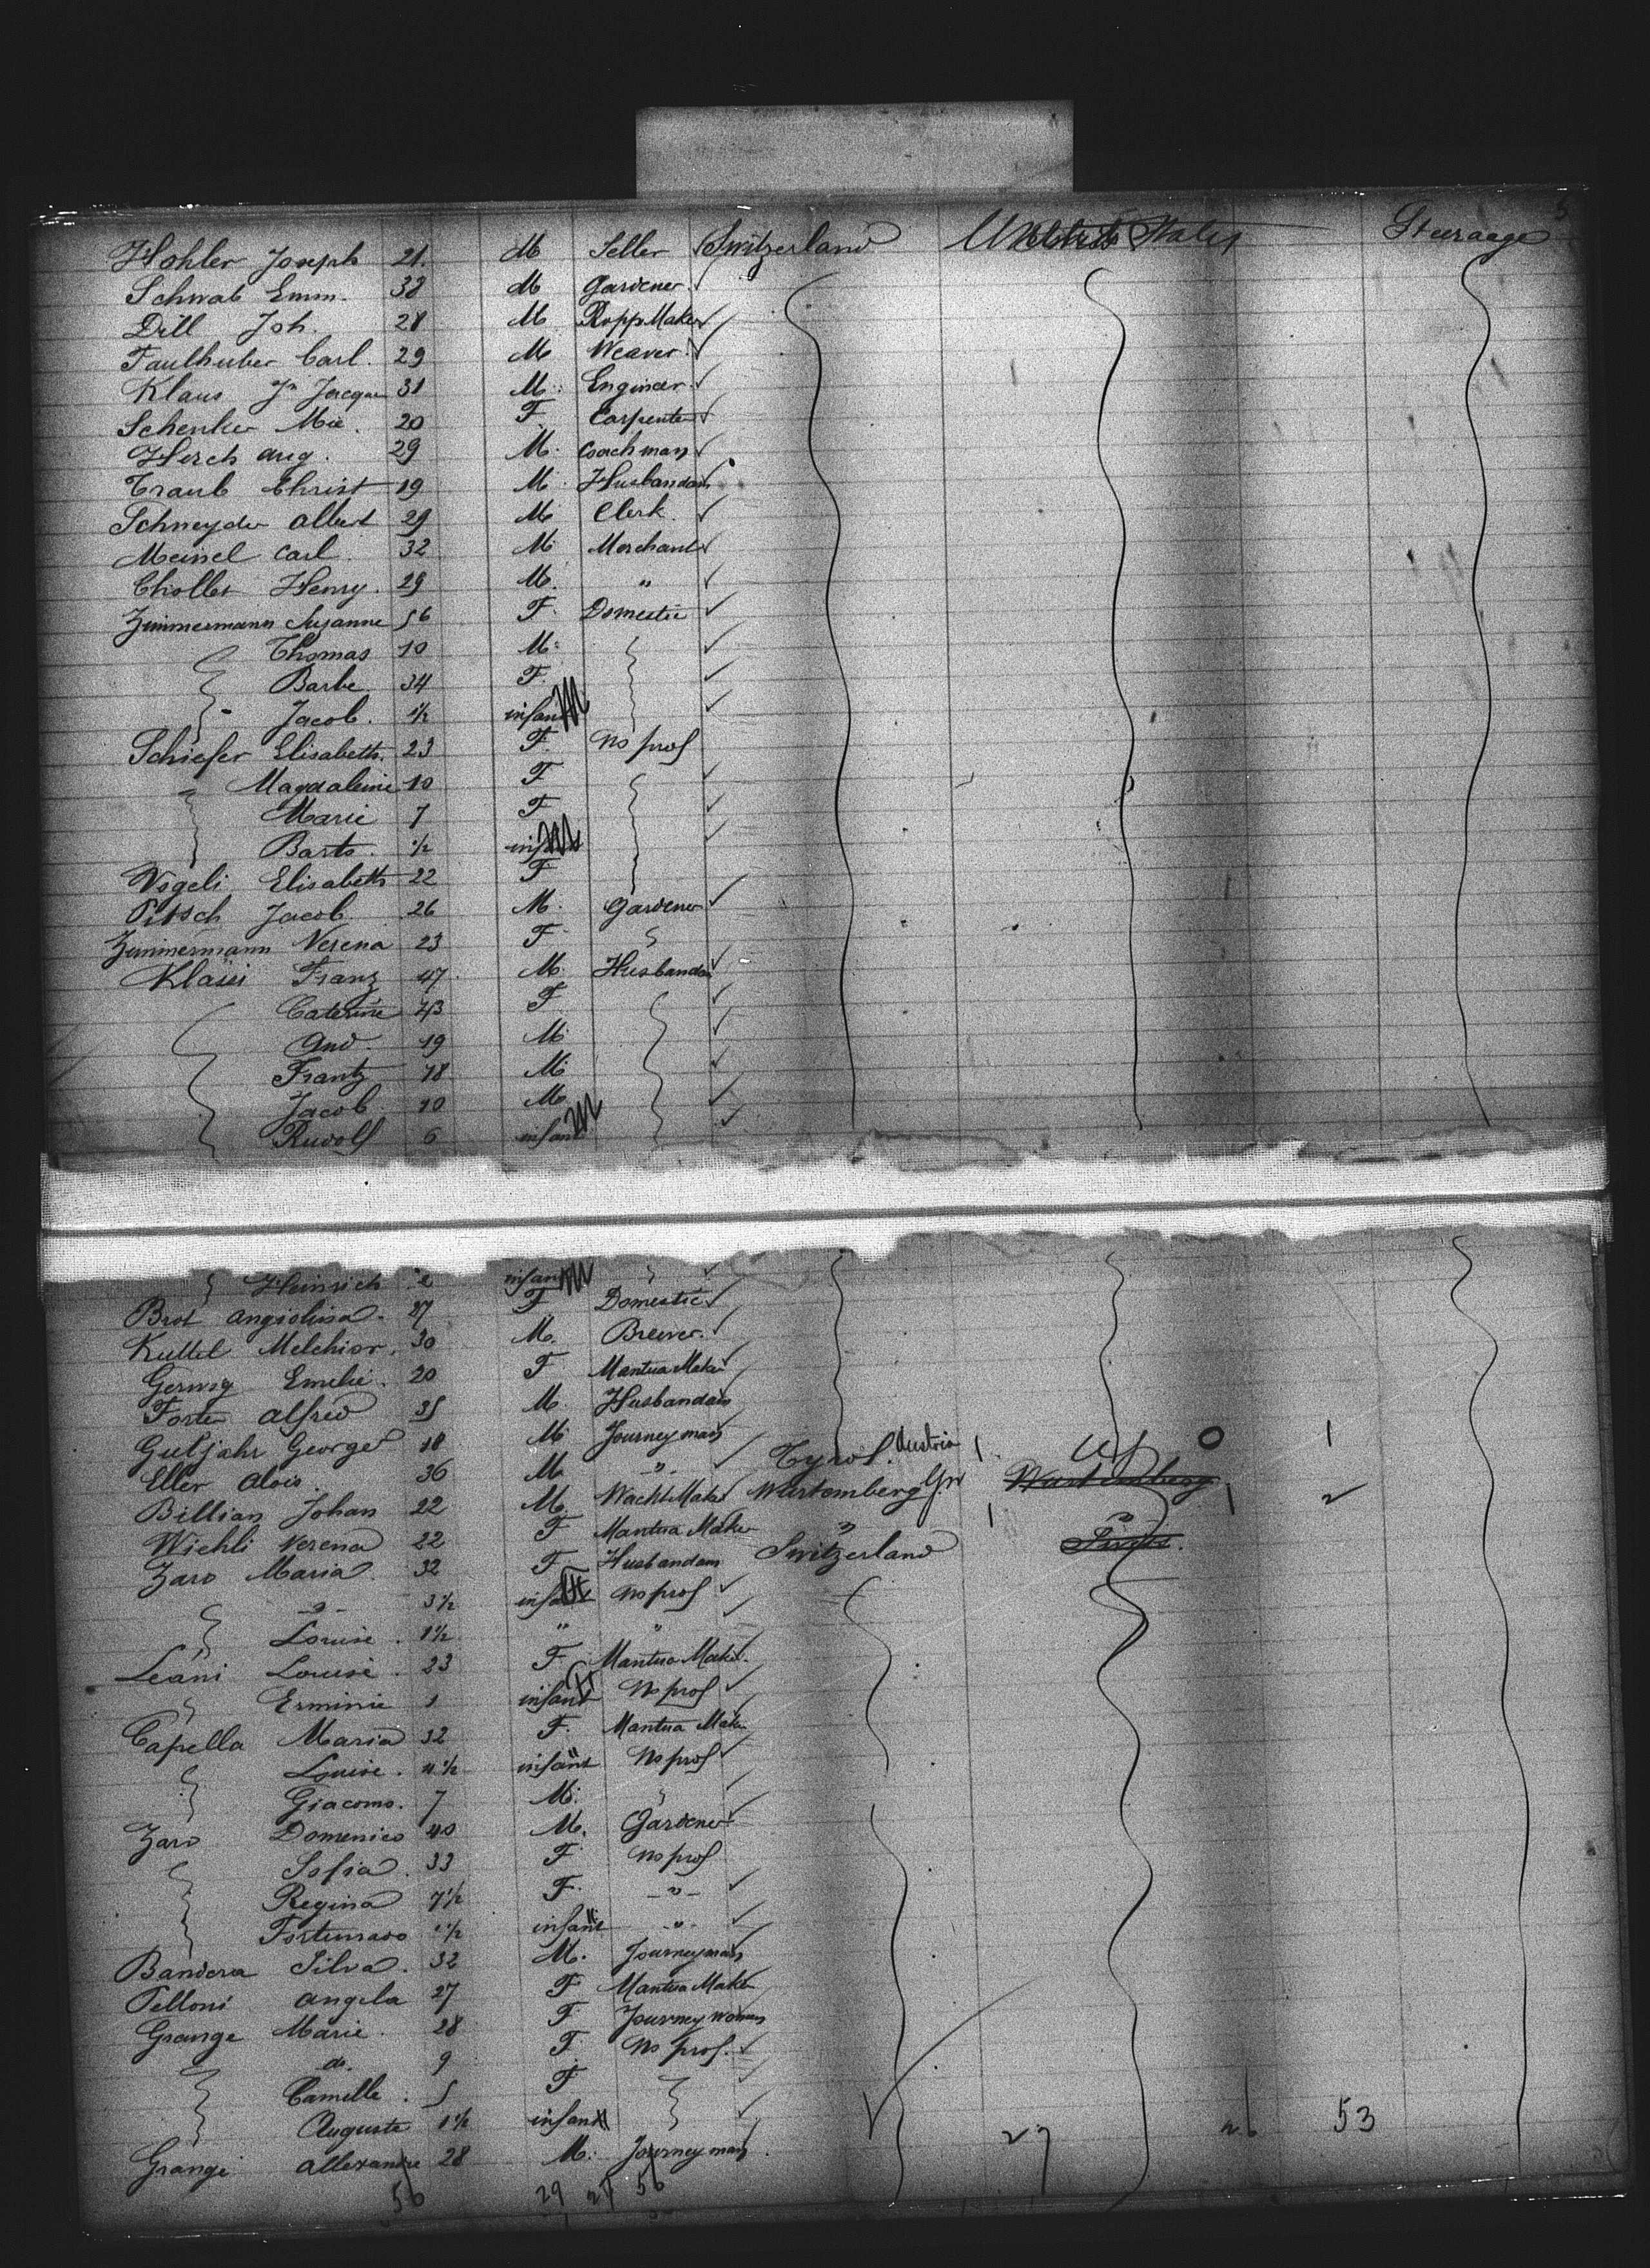 5
Hohler Joseph 21. M Seller Switzerland United States Steeraage
Schwab Emm. 38 M Gardener
Dill Joh. 28 M RoppMaker
Faulhuber Carl. 29 M Weaver
Klaus Jn Jacque 31 M. Engineer
Schenker Mie. 20 F. Carpenter
Herch Aug. 29 M. Coachman
Traub Christ 19 M. Husbandan
Schneyder Albert 29 M Clerk
Meinel Carl 32 M Merchant
Chollet Henry. 29 M. "
Zimmermann Susanne 56 F. Domestic
Thomas 10 M.
Barbe 34 F.
Jacob. 1/2 infant M
Schiefer Elisabeth. 23 F. No prof
Magdaleine 10 F
Marie 7 F
Barto. 1/2 infant M
Vogeli Elisabeth 22 F
Pitsch Jacob 26 M. Gardener
Zimmermann Verena 23 F
Franz 47 M. Husbandan
Caterine 43 F
And. 19 M
Frantz 18 M
Jacob. 10 M
Rudolf 6 infant M
Heinrich 2 infant M
Brot Angiolina. 27 F Domestic
Kuttel Melchior. 30 M. Brewer.
Gerwig Emelie. 20 F Mantua Maker
Alfred 35 M. Husbandan
Gutjahr George 18 M Journeyman
Eller Alois. 36 M " Tyrol. Austria 1 O 1
Billian Johan 22 M. WachtMaker Wurtemberg Gr Wurtemberg 1 2
Wiehli Verena 22 F Mantua Maker " 1 "
Zaro Maria 32 F Husbandam Switzerland
-"- 3 1/2 infant F No prof
Louise. 1 1/2 " "
Leani Louise. 23 F. Mantua Maker.
Erminie 1 infant F No prof
Capella Maria 32 F. Mantua Maker
Louise. 4 1/2 infant " No prof
Giacomo. 7 M. "
Zaro Domenico 40 M. Gardener
Sofia. 33 F No prof
Regina 7 1/2 F. -"-
1 1/2 infant " -"-
Bandera Silva. 32 M. Journeyman
Pelloni Angela 27 F Mantua Maker
Grange Marie. 28 F. Journey woman
do. 9 F. No prof.
Camille. 5 F
Auguste 1 1/2 infant
Grange Allexandre 28 M. Journeyman
27 26 53
56 29 27 56